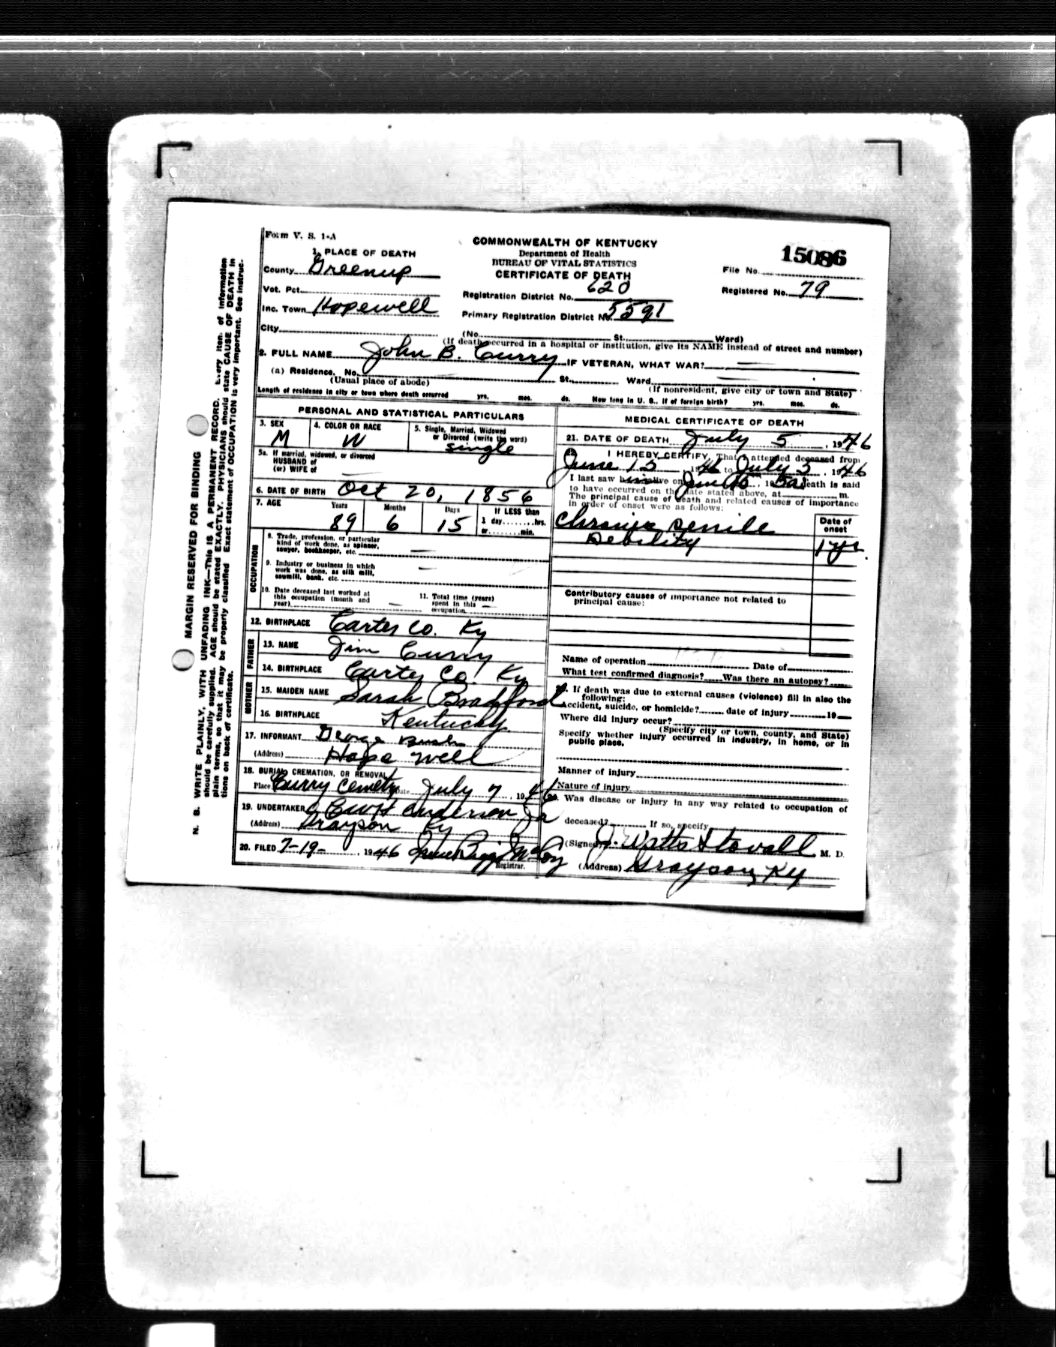 Form V. S. 1-A
COMMONWEALTH OF KENTUCKY
Department of Health
BUREAU OF VITAL STATISTICS
CERTIFICATE OF DEATH
File No. 15086
Registered No. 79
1. PLACE OF DEATH
County Greenup
Vot. Pct.
Inc. Town Hopewell
City
Registration District No. 620
Primary Registration District No. 5591
(No. St. Ward)
(If death occurred in a hospital or institution, give its NAME instead of street and number)
2. FULL NAME John B. Curry IF VETERAN, WHAT WAR?
(a) Residence. No. St. Ward
(Usual place of abode) (If nonresident, give city or town and State)
Length of residence in city or town where death occurred yrs. mos. ds. How long in U. S., if of foreign birth? yrs. mos. ds.
PERSONAL AND STATISTICAL PARTICULARS
3. SEX M
4. COLOR OR RACE W
5. Single, Married, Widowed or Divorced (write the word) single
5a. If married, widowed, or divorced
HUSBAND of
(or) WIFE of
6. DATE OF BIRTH Oct 20, 1856
7. AGE Years 89 Months 6 Days 15 If LESS than 1 day hrs. or min.
OCCUPATION
8. Trade, profession, or particular kind of work done, as spinner, sawyer, bookkeeper, etc.
9. Industry or business in which work was done, as silk mill, sawmill, bank, etc.
10. Date deceased last worked at this occupation (month and year)
11. Total time (years) spent in this occupation
12. BIRTHPLACE Carter Co. Ky
FATHER
13. NAME Jim Curry
14. BIRTHPLACE Carter Co Ky
MOTHER
15. MAIDEN NAME Sarah Bradford
16. BIRTHPLACE Kentucky
17. INFORMANT George Bush
(Address) Hope well
18. BURIAL, CREMATION, OR REMOVAL
Place Curry Cemetery Date July 7, 1946
19. UNDERTAKER Anderson
(Address) Grayson Ky
20. FILED 7-19- , 1946
Registrar.
MEDICAL CERTIFICATE OF DEATH
21. DATE OF DEATH July 5, 1946
22. I HEREBY CERTIFY, That I attended deceased from
June 15 1946 to July 5, 1946
I last saw him alive on death is said
to have occurred on the date stated above, at m.
The principal cause of death and related causes of importance
in order of onset were as follows:
Date of onset
Chronic Senile
Debility 1 yr.
Contributory causes of importance not related to principal cause:
Name of operation Date of
What test confirmed diagnosis? Was there an autopsy?
23. If death was due to external causes (violence) fill in also the following:
Accident, suicide, or homicide? date of injury 19
Where did injury occur?
(Specify city or town, county, and State)
Specify whether injury occurred in industry, in home, or in public place.
Manner of injury
Nature of injury
24. Was disease or injury in any way related to occupation of
deceased? If so, specify
(Signed) J. Watts Stovall M. D.
(Address) Grayson, Ky
MARGIN RESERVED FOR BINDING
N. B. WRITE PLAINLY, WITH UNFADING INK—This is A PERMANENT RECORD. Every item of information
should be carefully supplied. AGE should be stated EXACTLY. PHYSICIANS should state CAUSE OF DEATH in
plain terms, so that it may be properly classified. Exact statement of OCCUPATION is very important. See instruc-
tions on back of certificate.